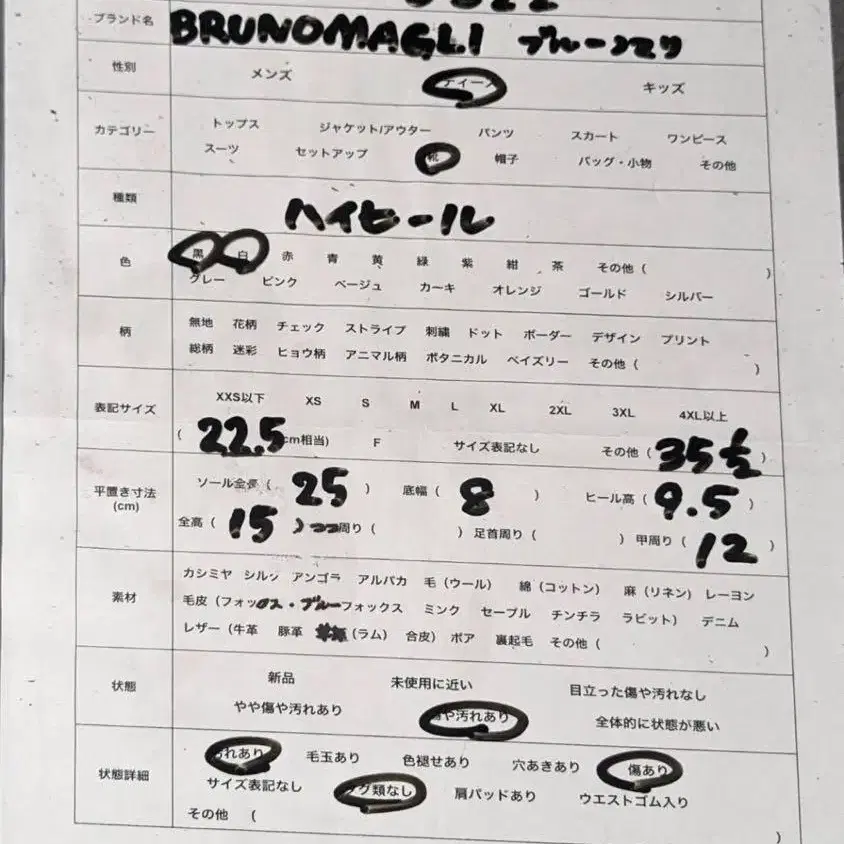 ブランド名 BRUNOMAGLI ブルーノマリ
性別 メンズ レディース キッズ
カテゴリー トップス ジャケット/アウター パンツ スカート ワンピース
スーツ セットアップ 靴 帽子 バッグ・小物 その他
種類 ハイヒール
色 黒 白 赤 青 黄 緑 紫 紺 茶 その他 ( )
グレー ピンク ベージュ カーキ オレンジ ゴールド シルバー
柄 無地 花柄 チェック ストライプ 刺繍 ドット ボーダー デザイン プリント
総柄 迷彩 ヒョウ柄 アニマル柄 ボタニカル ペイズリー その他 ( )
表記サイズ XXS以下 XS S M L XL 2XL 3XL 4XL以上
( 22.5cm相当) F サイズ表記なし その他 ( 35 1/2 )
平置き寸法 (cm) ソール全長 ( 25 ) 底幅 ( 8 ) ヒール高 ( 9.5 )
全高 ( 15 ) 周り ( ) 足首周り ( ) 甲周り ( 12 )
素材 カシミヤ シルク アンゴラ アルパカ 毛 (ウール) 綿 (コットン) 麻 (リネン) レーヨン
毛皮 (フォックス・ブルーフォックス ミンク セーブル チンチラ ラビット) デニム
レザー (牛革 豚革 (ラム) 合皮) ボア 裏起毛 その他 ( )
状態 新品 未使用に近い 目立った傷や汚れなし
やや傷や汚れあり 傷や汚れあり 全体的に状態が悪い
状態詳細 汚れあり 毛玉あり 色褪せあり 穴あきあり 傷あり
サイズ表記なし タグ類なし 肩パッドあり ウエストゴム入り
その他 ( )